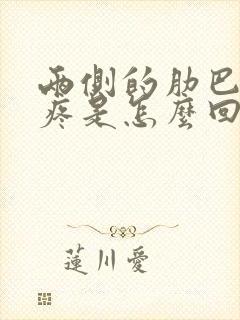 兩側的肋巴
疼是怎麼回
蓮川愛